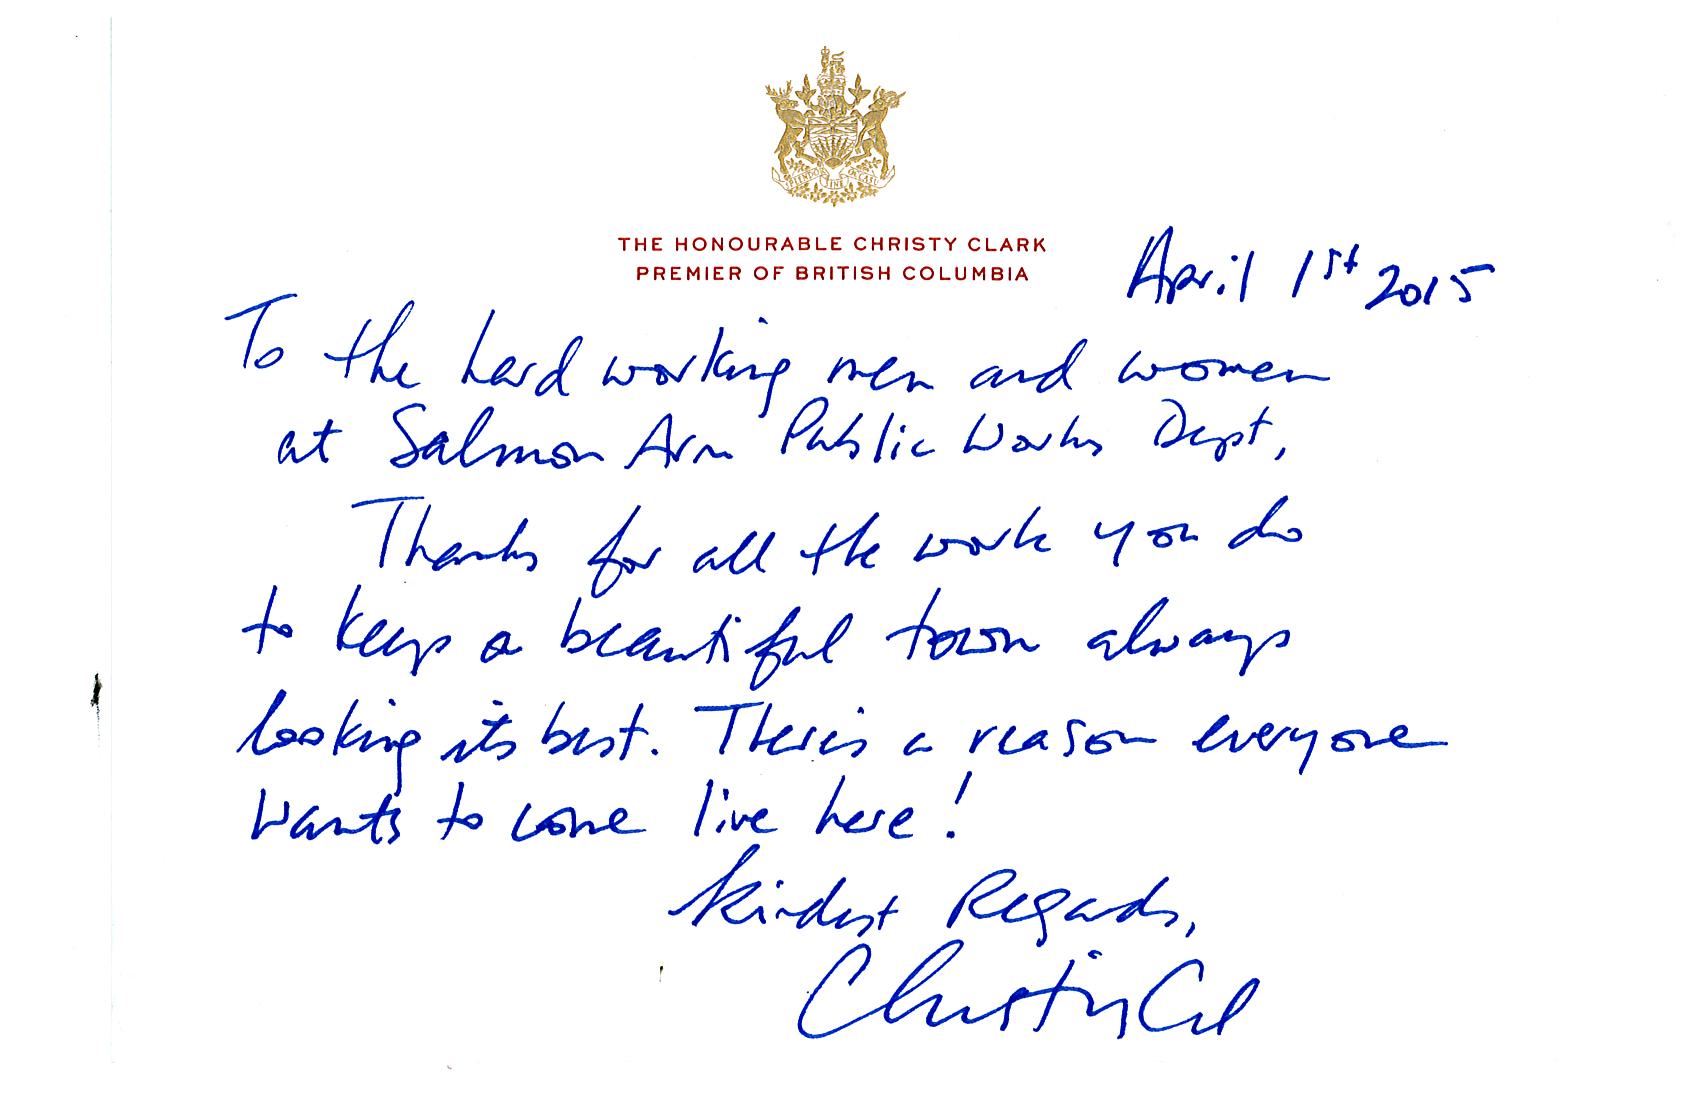 SPLENDOR SINE OCCASU
THE HONOURABLE CHRISTY CLARK
PREMIER OF BRITISH COLUMBIA
April 1st 2015
To the hard working men and women
at Salmon Arm Public Works Dept,
Thanks for all the work you do
to keep a beautiful town always
looking its best. There's a reason everyone
wants to come live here!
Kindest Regards,
Christy Clark